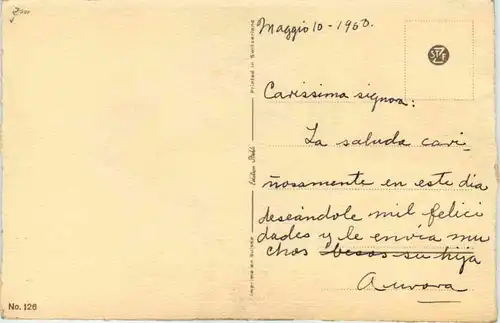 Maggio 10 - 1960.
Carissima signora:
La saluda cari-
ñosamente en este dia
deseándole mil felici
dades y le envía mu
chos besos su hija
Aurora
Printed in Switzerland
Edition Stehli
Imprimé en Suisse
No. 126